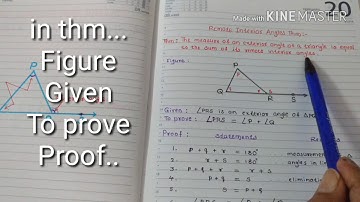 Made with KINEMASTER
20
in thm...
Figure
Given
To prove
Proof..
Remote Interior Angles Thm:-
Thm: The measure of an exterior angle of a triangle is equal
to the sum of its remote interior angles.
Figure:
P
P
Q
R
S
Given: ∠PRS is an exterior angle of ΔPQ
To prove: ∠PRS = ∠P + ∠Q
Proof: Statements Re
1. p + q + r = 180° measure
2. r + s = 180° angles in lin
3. p + q + r = r + s
4. p + q = s elimin
5. s = p + q